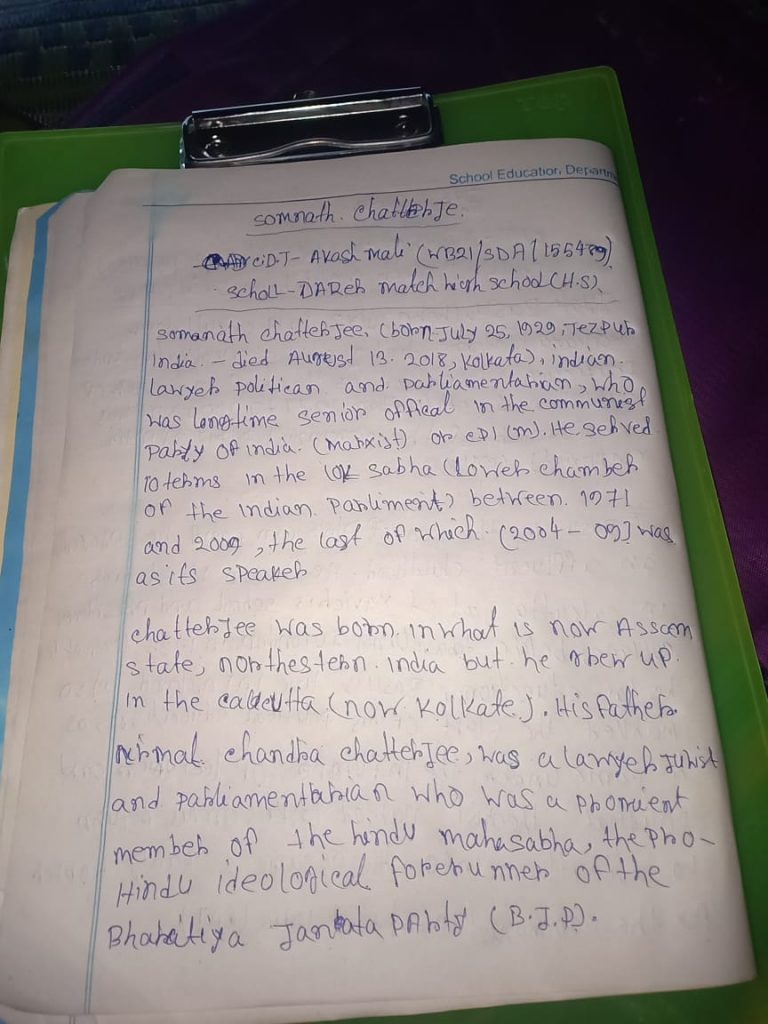 School Education, Departm
somnath. chatterje.
CDT- Akash mali (WB21/SDA/155489)
scholl-DAReh match high school (H.S)
somanath chatterjee, (born July 25, 1929, Tezpur
India. - died August 13. 2018, Kolkata), indian.
lawyer politican and parliamentarian, who
was longtime senior offical in the communest
party of india. (marxist) or CPI (m). He served
10 terms in the lok sabha (lower chamber
of the indian parliment) between. 1971
and 2009, the last of which. (2004 - 09] was
as its speaker
chatterjee was born. in what is now Asscom
state, northestern. india but he grew up.
in the calcutta (now Kolkate). His father
nirmal. chandra chatterjee, was a lawyer jurist
and parliamentarian who was a promient
member of the hindu mahasabha, the pro-
Hindu ideological forerunner of the
Bharatiya Janata party (B.J.P).